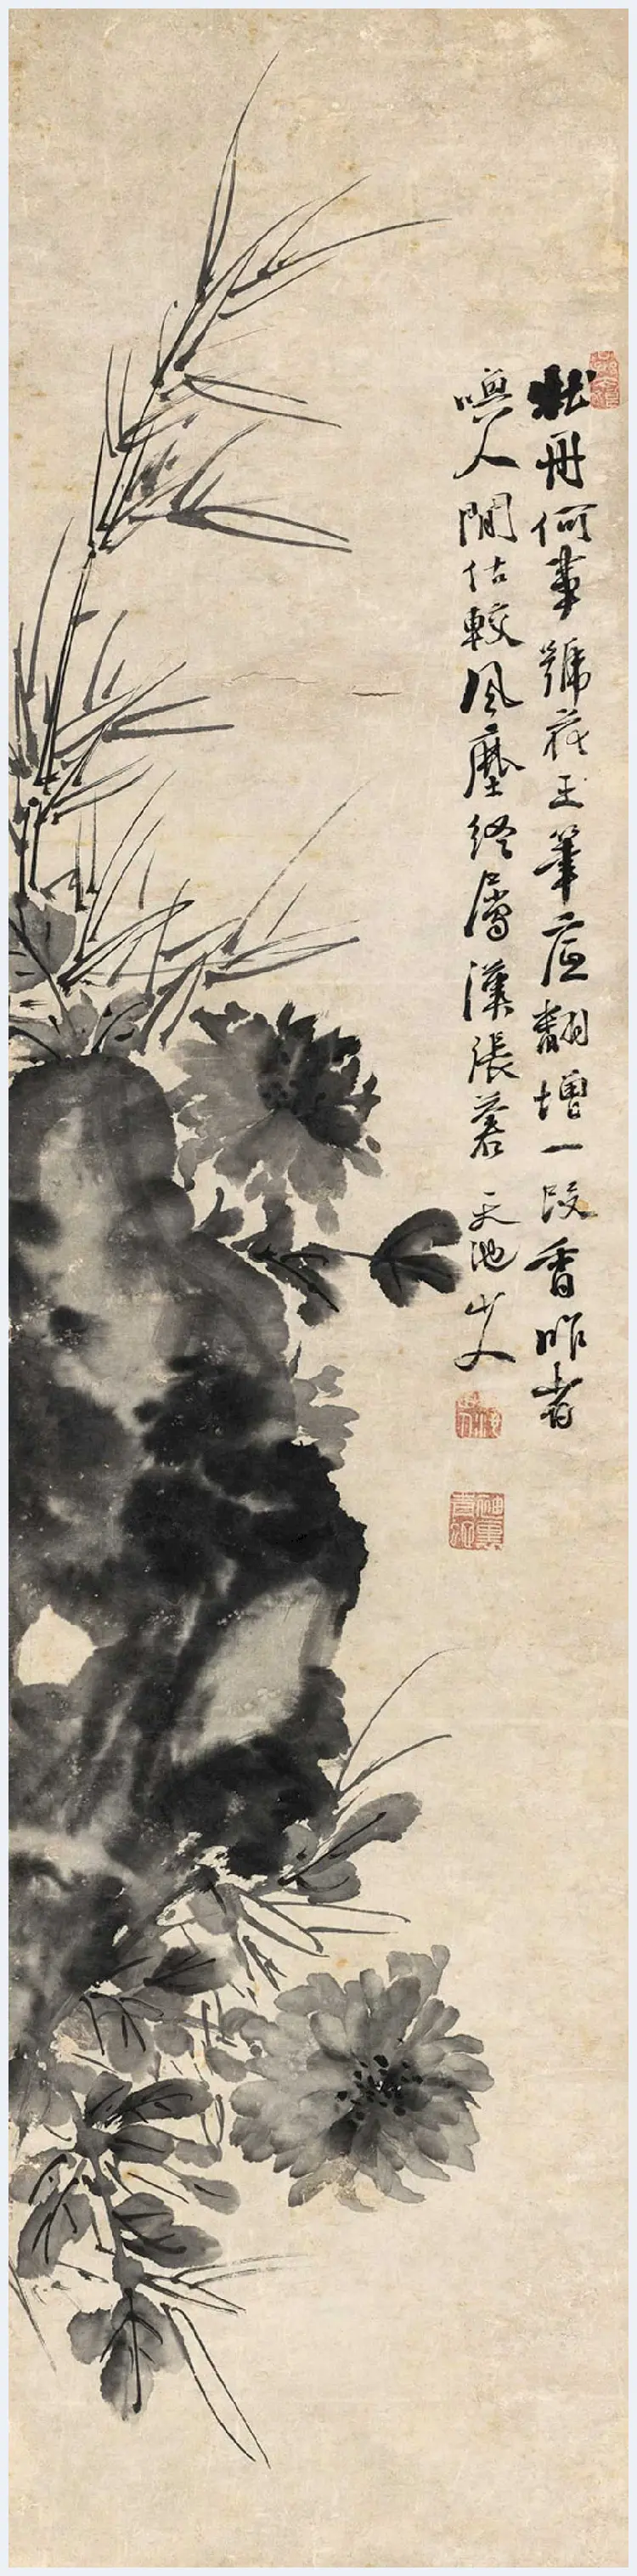 牡丹何事號花王筆底翻增一段香昨者
嘆人間估較風塵終屬漢張蒼 天池山人